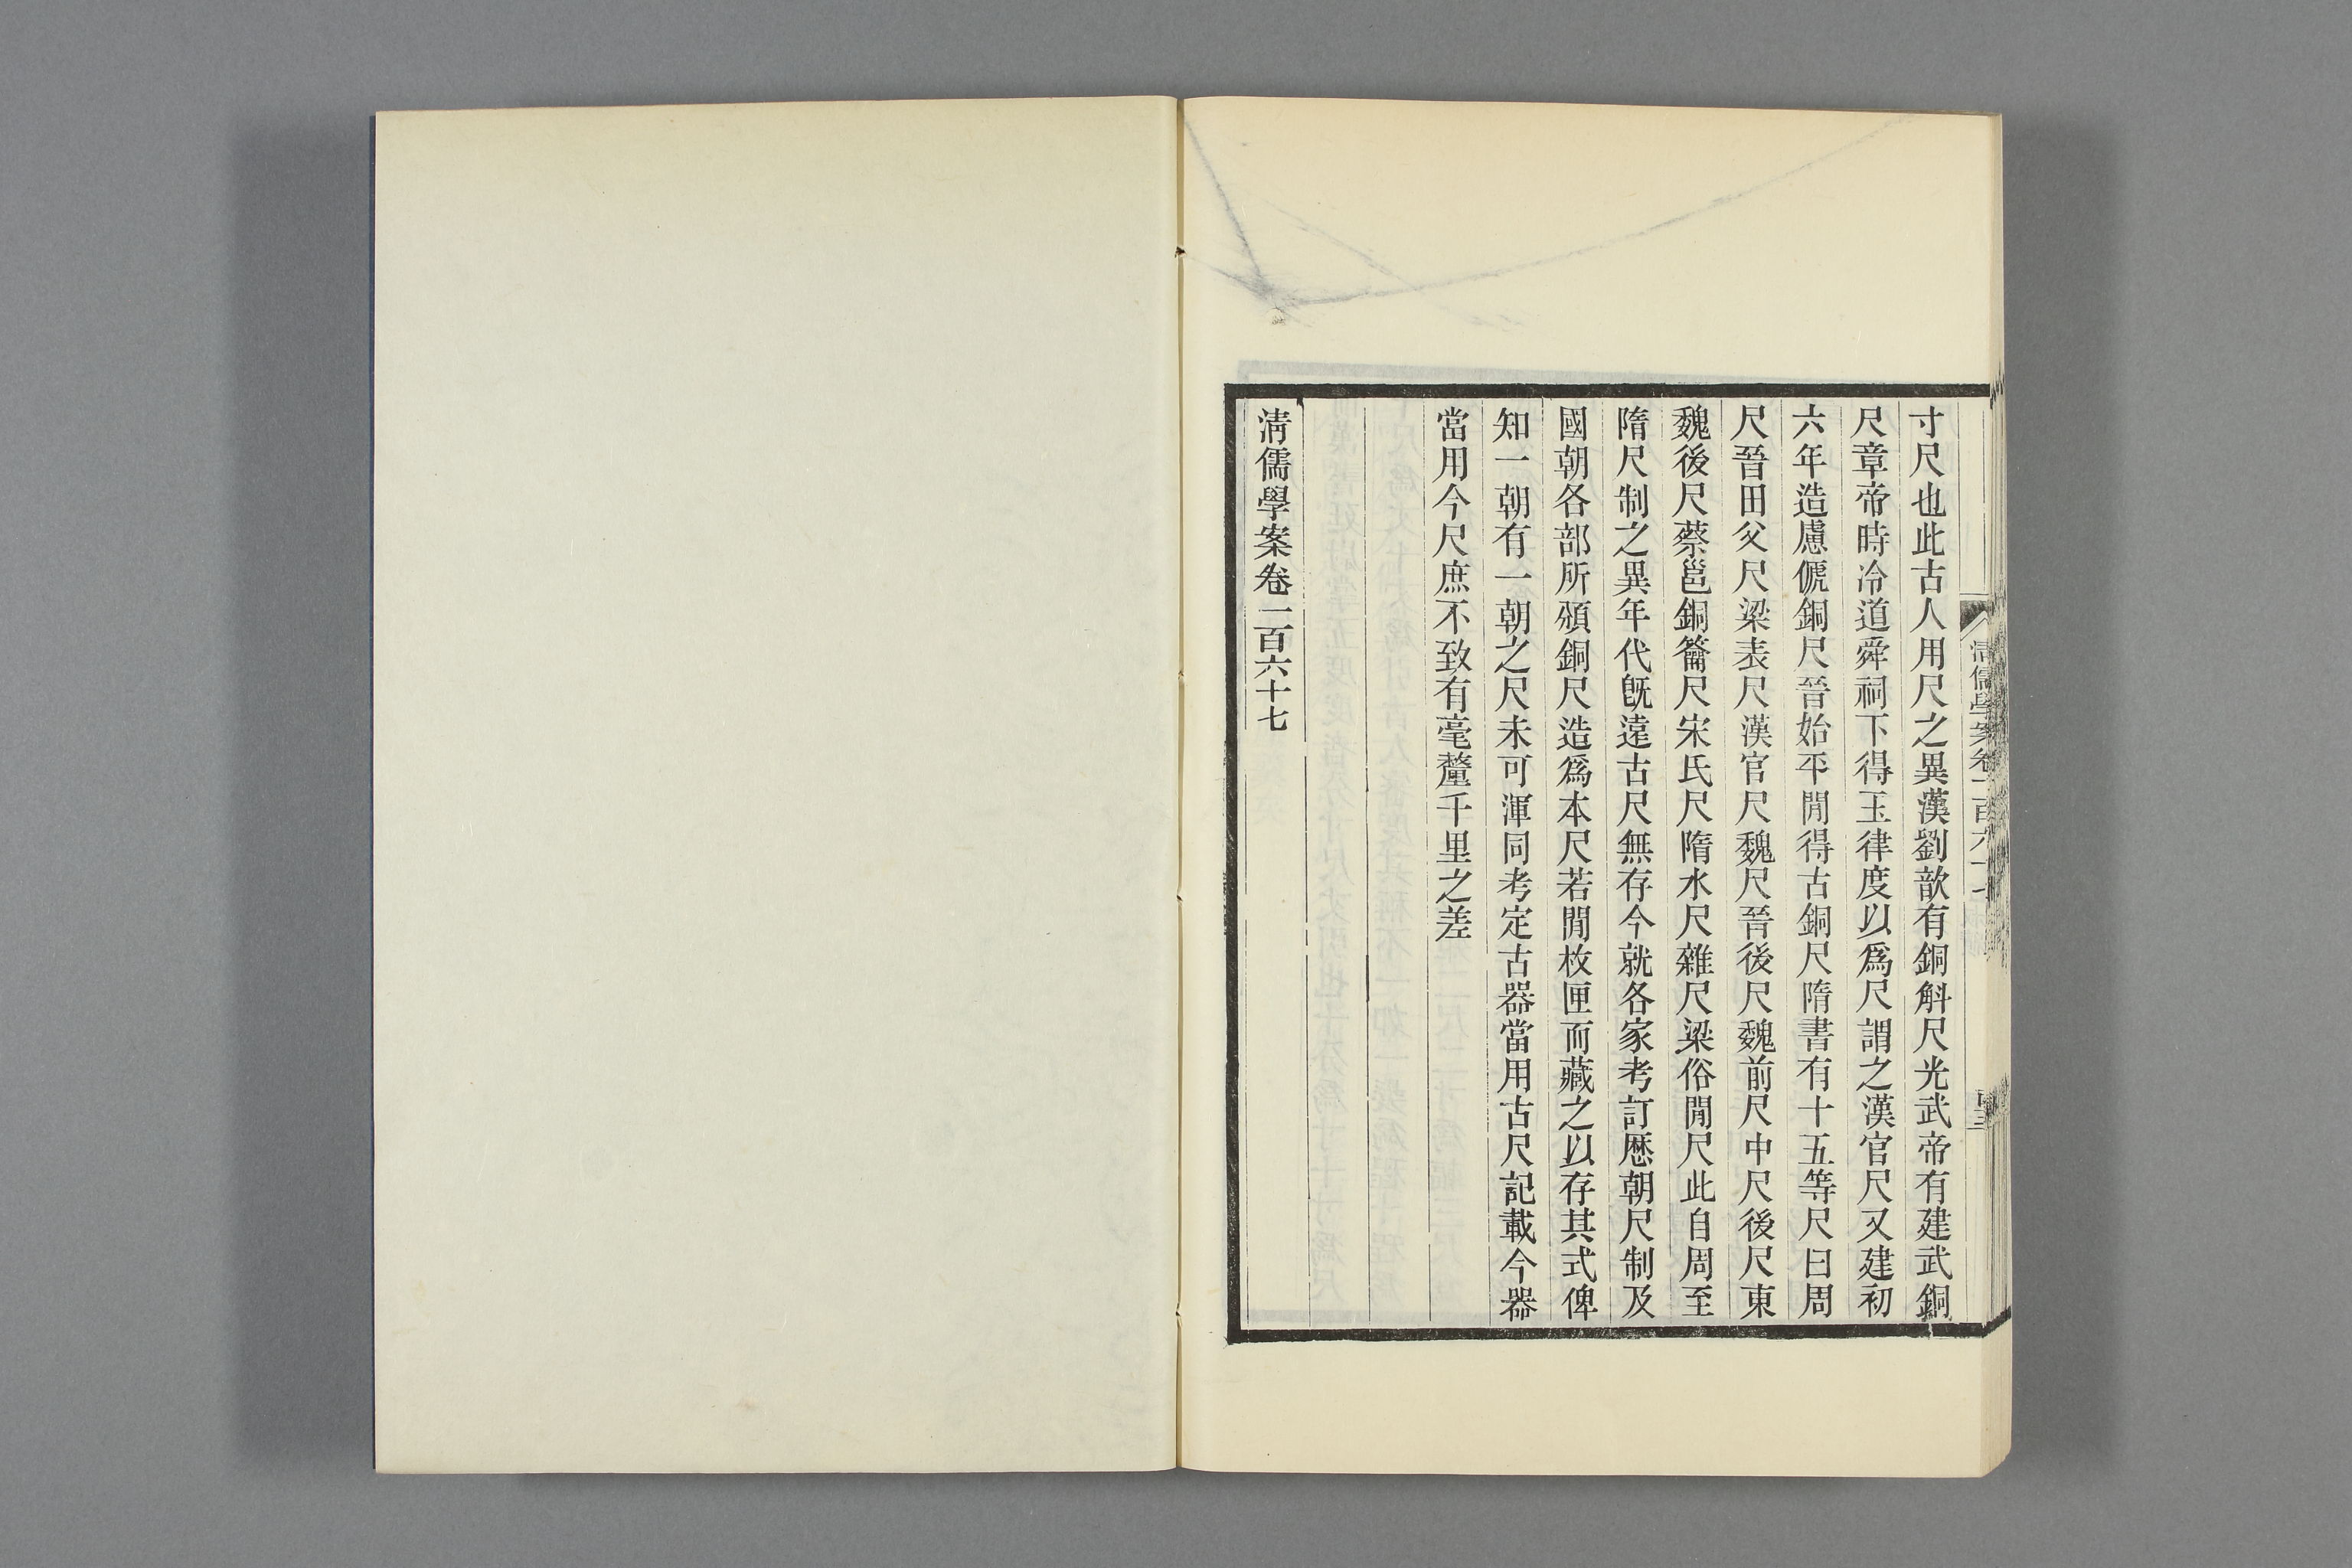 寸尺也此古人用尺之異漢劉歆有銅斛尺光武帝有建武銅
尺章帝時泠道舜祠下得玉律度以爲尺謂之漢官尺又建初
六年造慮俿銅尺晉始平閒得古銅尺隋書有十五等尺曰周
尺晉田父尺梁表尺漢官尺魏尺晉後尺魏前尺中尺後尺東
魏後尺蔡邕銅籥尺宋氏尺隋水尺雜尺梁俗閒尺此自周至
隋尺制之異年代旣遠古尺無存今就各家考訂歷朝尺制及
國朝各部所頒銅尺造爲本尺若閒枚匣而藏之以存其式俾
知一朝有一朝之尺未可渾同考定古器當用古尺記載今器
當用今尺庶不致有毫釐千里之差
清儒學案卷一百六十七
清儒學案卷一百六十七